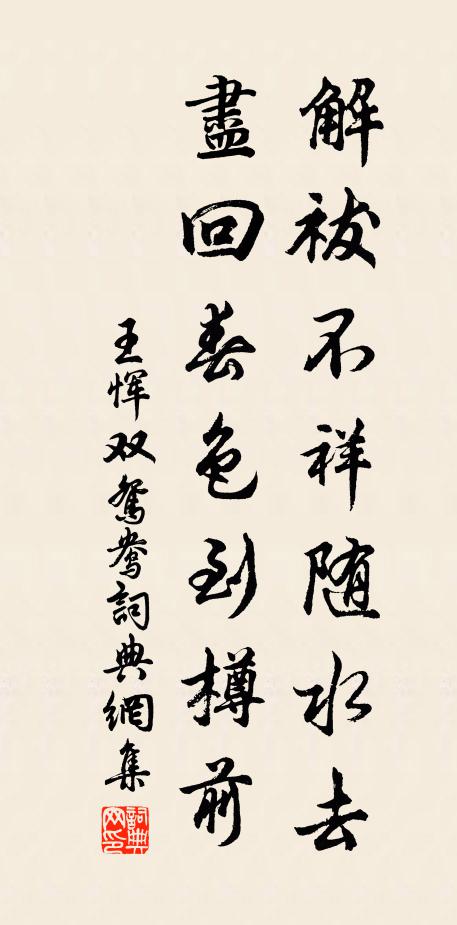 解祓不祥随水去
盡回春色到樽前
王恽双鸳鸯詞典網集
詞典网印